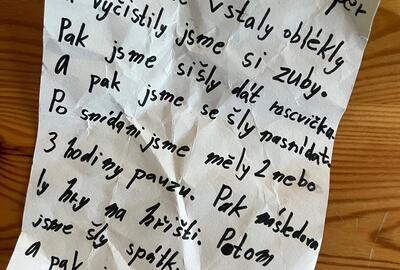 vstaly oblékly
a vyčistily jsme si zuby.
Pak jsme si šly dát roscvičku
a pak jsme se šly nasnídat.
Po snídani jsme měly 2 nebo
3 hodiny pauzu. Pak následova
ly hry na hřišti. Potom
jsme šly spátk
a pak